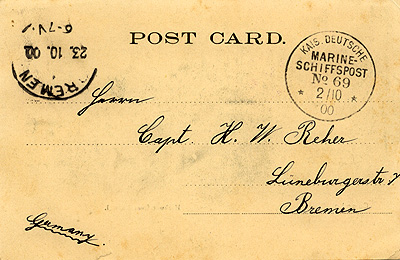 POST CARD.
KAIS. DEUTSCHE
MARINE-
SCHIFFSPOST
No 69
* 2/10 *
00
BREMEN
23.10.00
6-7V
Herrn
Capt. H. W. Reher
Lüneburgerstr 7
Bremen
Germany.